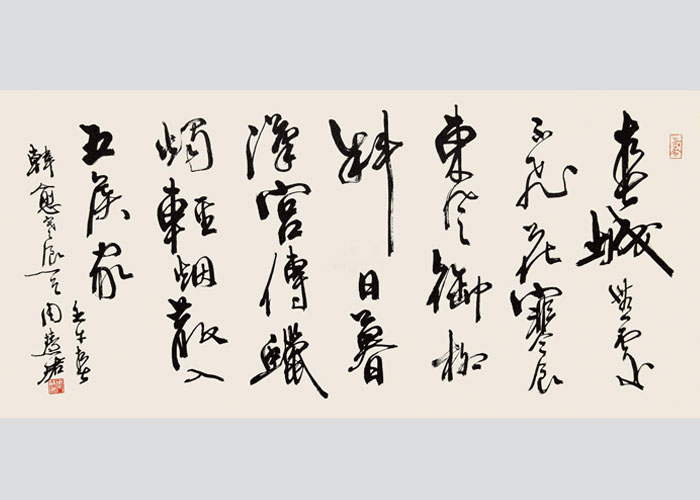 春城無處
不飛花寒食
東風御柳
斜日暮
漢宮傳蠟
燭輕烟散入
五侯家
韓愈寒食
壬午春
周慧珺